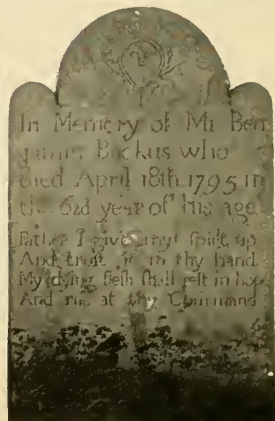 In Memory of Mr Ben
jamin Backus who
died April 18th 1795 in
the 62d year of his age
Father I give my spirit up
And trust it in thy hand
My dying flesh shall rest in hope
And rise at thy Command